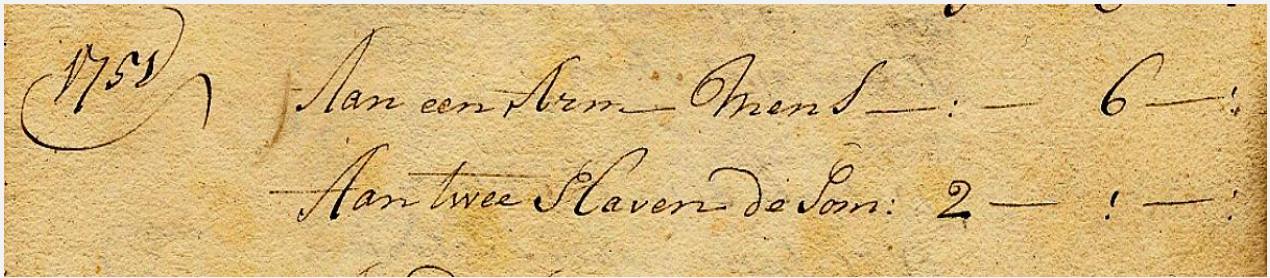 1751 Aan een Arm Mens — : — 6 — :
Aan twee Slaven de Som: 2 — : — :